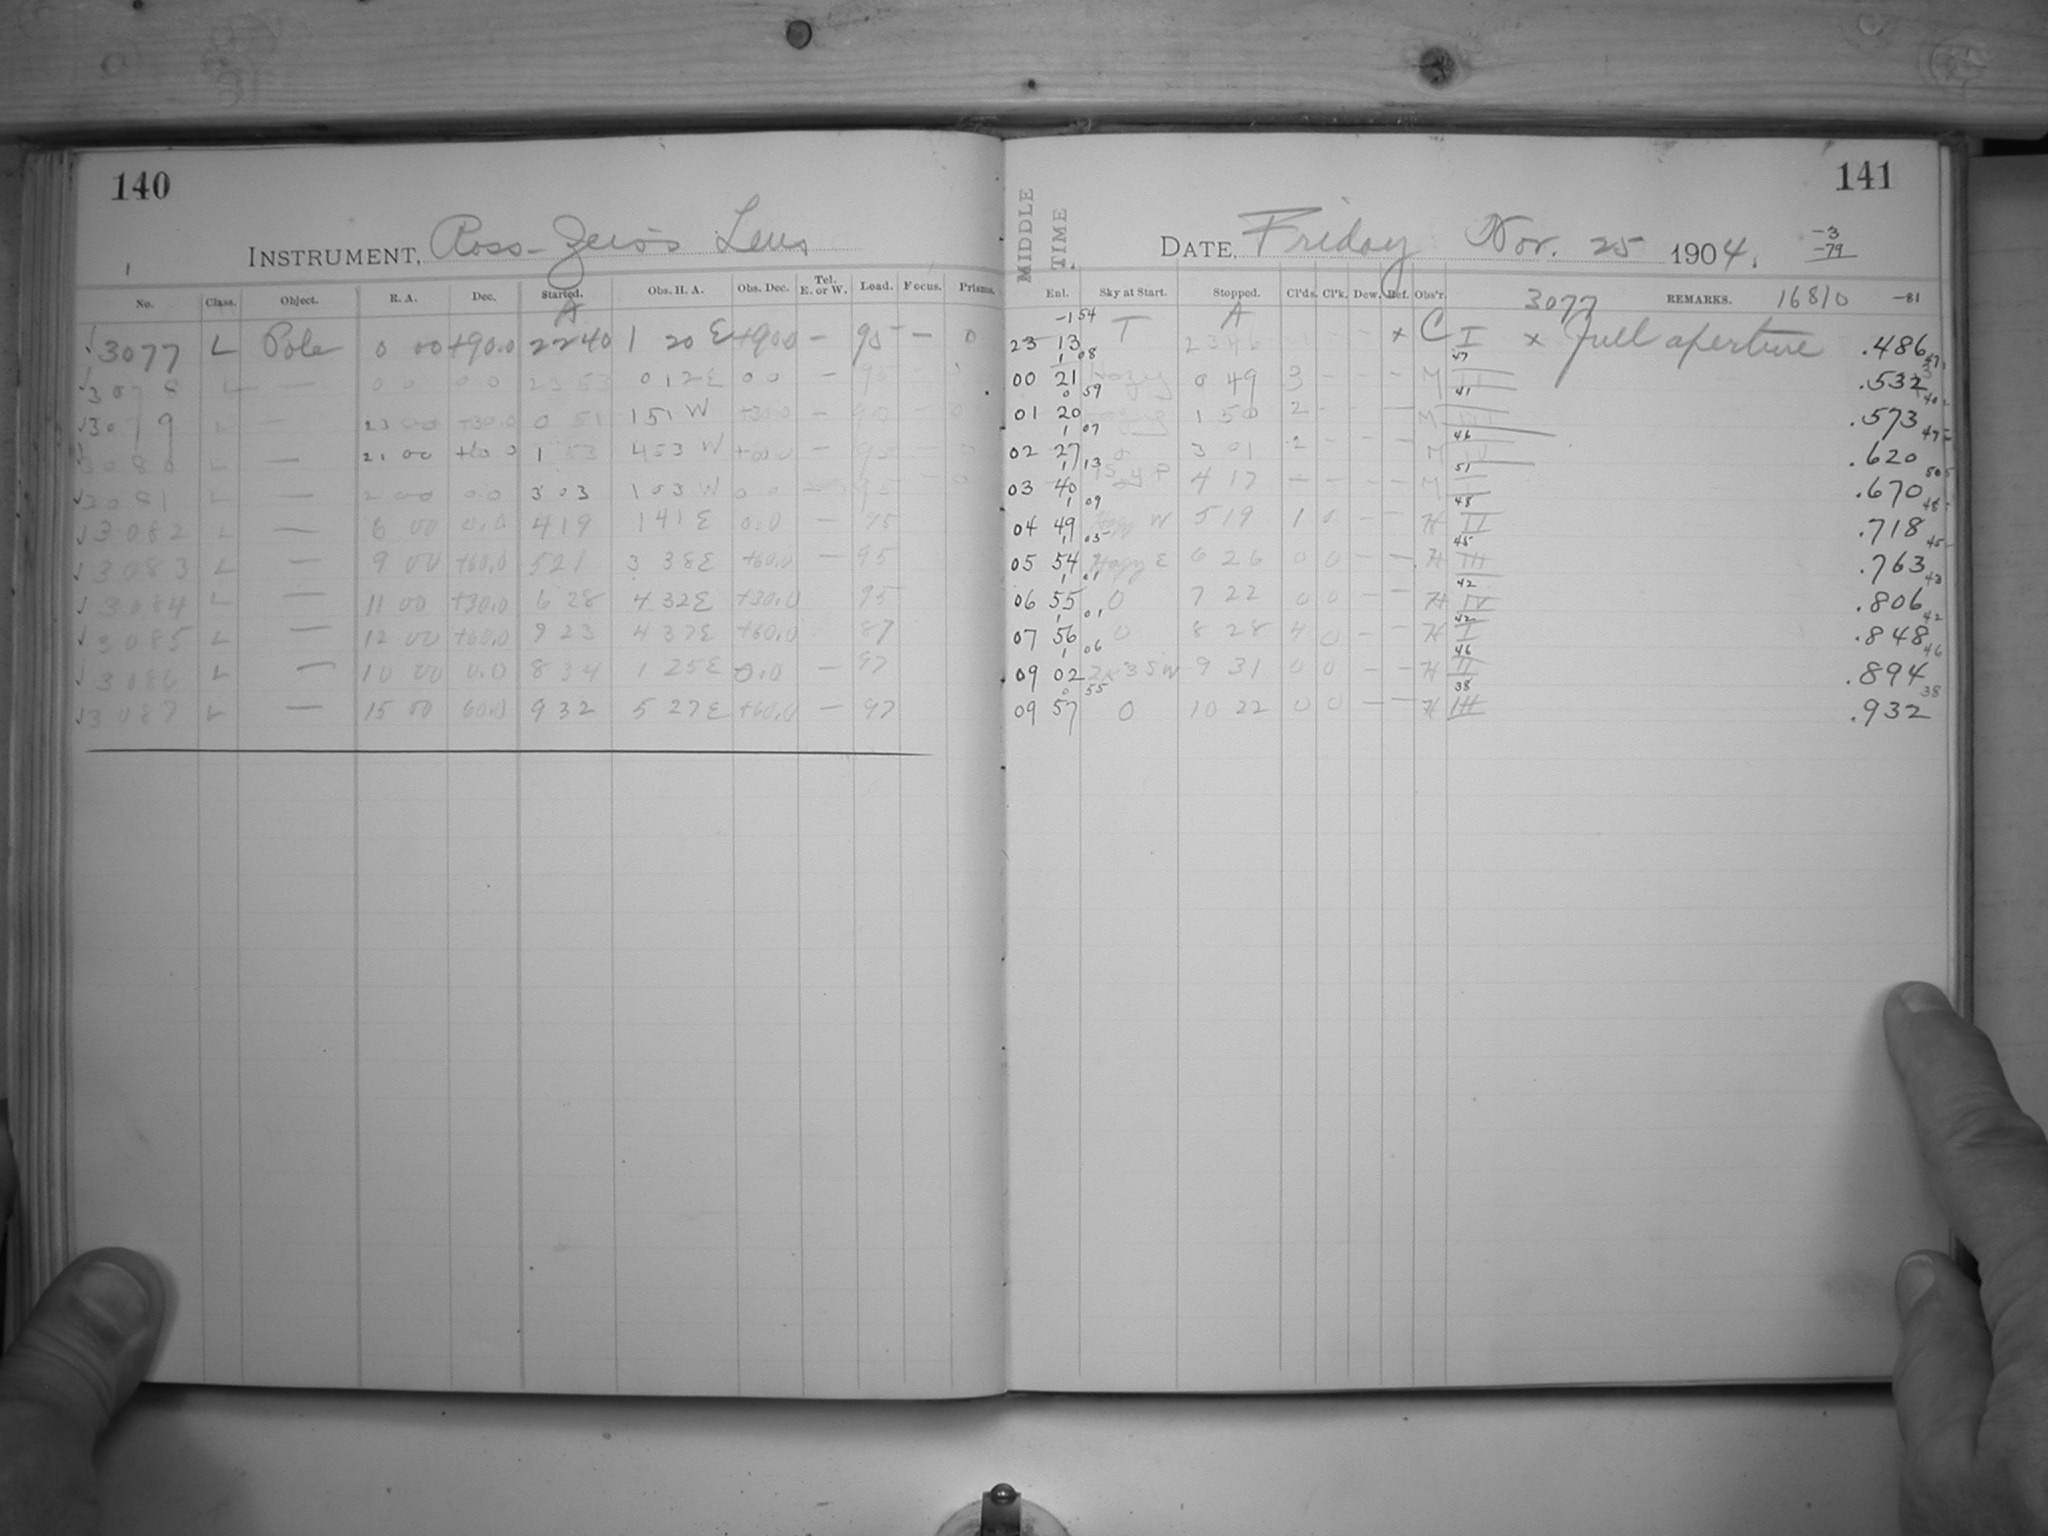 140
INSTRUMENT, Ross-Zeiss Lens
No. Class. Object. R. A. Dec. Started. Obs. H. A. Obs. Dec. Tel. E. or W. Load. Focus. Prisms.
A
3077 L Pole 0 00 +90.0 2240 1 20 E +90.0 — 95 — 0
3078 L — 0 0 0 0 23 53 0 12 E 0 0 — 95
3079 L — 23 00 +30.0 0 51 1 51 W +30.0 — 95 — 0
3080 L — 21 00 +60.0 1 53 4 53 W +60.0 — 95 — 0
3081 L — 2 00 0.0 3 03 1 03 W 0 0 95
3082 L — 6 00 0.0 4 19 1 41 E 0.0 — 95
3083 L — 9 00 +60.0 5 21 3 38 E +60.0 — 95
3084 L — 11 00 +30.0 6 28 4 32 E +30.0 95
3085 L — 12 00 +60.0 23 4 37 E +60.0 87
3086 L — 10 00 0.0 8 34 1 25 E 0.0 — 97
3087 L — 15 00 60.0 9 32 5 27 E +60.0 — 97
141
MIDDLE TIME.
DATE, Friday Nov. 25 1904.
-3
-79
-81
Ent. Sky at Start. Stopped. Cl'ds. Cl'k. Dew. Ref. Obs'r. REMARKS.
3077 16810
-1 54 A
23 13 T 2346 x C I x Full aperture .486
1 08 47
00 21 Hazy 0 49 3 - - - M II .532
0 59 41
01 20 Hazy 1 50 2 - - - M III .573
1 07 46
02 27 0 3 01 2 - - - M IV .620
1 13 51
03 40 4 17 - - - - M I .670
1 09 48
04 49 Hazy W 5 19 1 0 - - H II .718
1 05 45
05 54 Hazy E 6 26 0 0 - - H III .763
1 01 42
06 55 0 7 22 0 0 - - H IV .806
1 01 42
07 56 0 8 28 4 0 - - H I .848
1 06 46
09 02 W 9 31 0 0 - - H II .894
0 55 38
09 57 0 10 22 0 0 - - H III .932